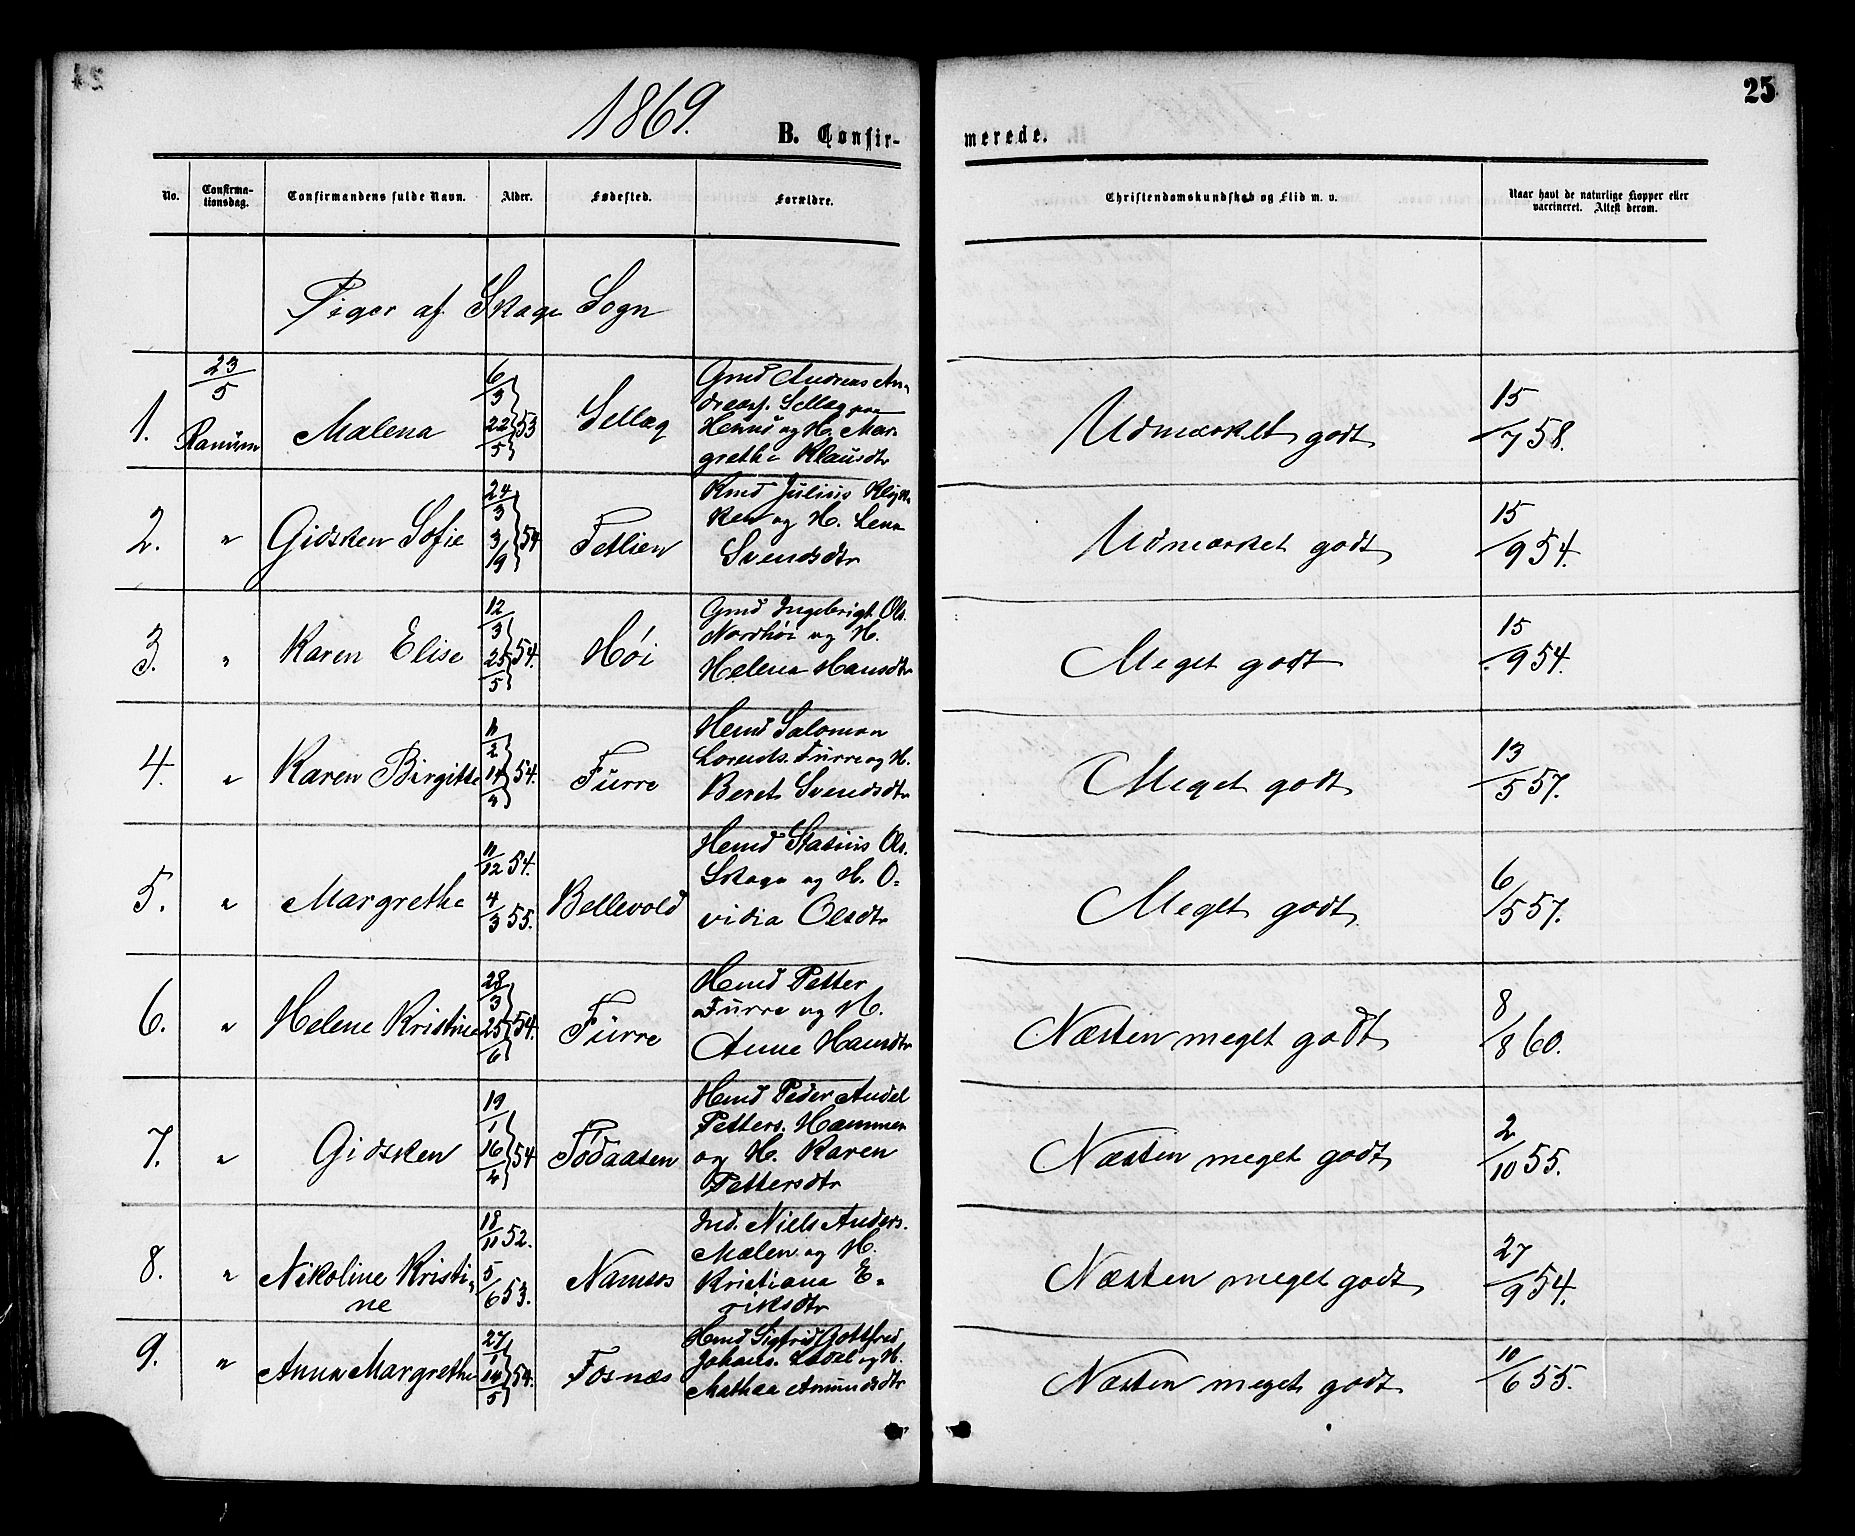 25
1869.
B. Confir-
merede.
No.
Confirma-
tionsdag.
Confirmandens fulde Navn.
Alder.
Fødested.
Forældre.
Christendomskundskab og Flid m. v.
Naar havt de naturlige Kopper eller
vaccineret. Attest derom.
Piger af Skage Sogn
1.
23/5
Ranum
Malena
6/3
22/5 } 53
Sellæg
Gmd Andreas An-
dreass. Sellæg paa
og H. Mar-
grethe Klausdtr
Udmærket godt
15/7 58.
2.
"
Gidsken Sofie
24/3
3/19 } 54
Fetlien
Kmd Julius Klyk-
ken og H. Lena
Svendsdtr
Udmærket godt
15/9 54.
3.
"
Karen Elise
12/3
25/5 } 54.
Høi
Gmd Ingebrigt Ols.
Nordhøi og H.
Helena Hansdtr
Meget godt
15/9 54.
4.
"
Karen Birgitte
11/2
14/4 } 54.
Furre
Hmd Salomon
Lorents. Furre og H.
Beret Svendsdtr
Meget godt
13/5 57.
5.
"
Margrethe
11/12 54.
4/3 55.
Bellevold
Hmd Stasius Ols.
Skage og H. O-
vidia Olsdtr
Meget godt
6/5 57.
6.
"
Helene Kristine
28/3
25/6 } 54.
Furre
Hmd Petter
Furre og H.
Anne Hansdtr
Næsten meget godt
8/8 60.
7.
"
Gidsken
19/1
16/4 } 54
Tødaasen
Hmd Peder Andel
Petters. Hammer
og H. Karen
Pettersdtr
Næsten meget godt
2/10 55.
8.
"
Nikoline Kristi-
ne
18/11 52.
5/6 53.
Namsos
Ind. Niels Anders.
Mælen og H.
Kristiana E-
riksdtr
Næsten meget godt
27/9 54.
9.
"
Anna Margrethe
27/1
14/5 } 54.
Fosnæs
Hmd Sigfrid Gottfred
og H.
Mathea Amundsdtr
Næsten meget godt
10/6 55.